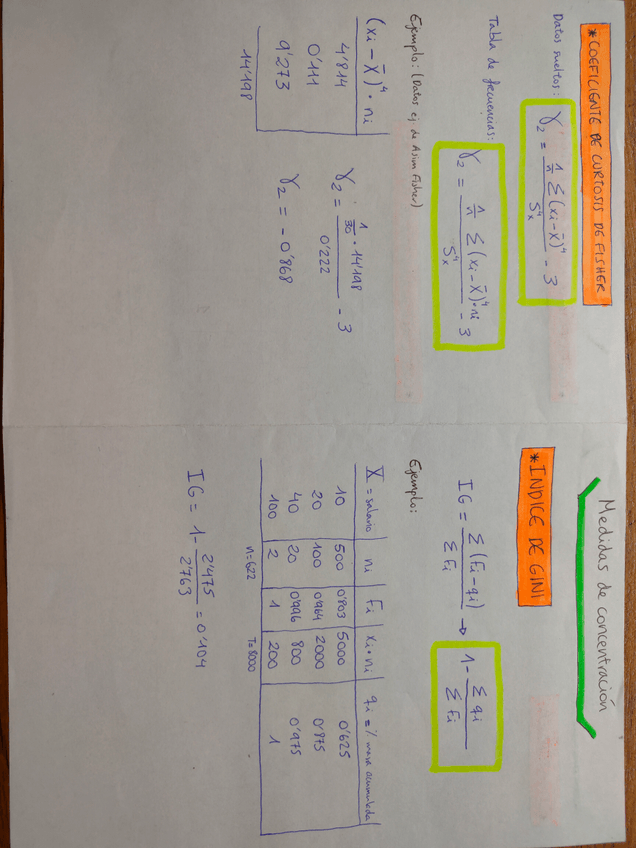 *COEFICIENTE DE CURTOSIS DE FISHER
Datos sueltos: γ₂ = (1/n Σ(xi - x̄)⁴) / Sₓ⁴ - 3
Tabla de frecuencias: γ₂ = (1/n Σ(xi - x̄)⁴·ni) / Sₓ⁴ - 3
Ejemplo: (Datos ej de Asim Fisher)
(xi - x̄)⁴·ni
4'814
0'111
9'273
14'198
γ₂ = (1/30 · 14'198) / 0'222 - 3
γ₂ = -0'868
Medidas de concentración
*INDICE DE GINI
IG = Σ(Fi - qi) / ΣFi → 1 - Σqi / ΣFi
Ejemplo:
X = salario | ni | Fi | xi·ni | qi = % masa acumulada
10 | 500 | 0'803 | 5000 | 0'625
20 | 100 | 0'964 | 2000 | 0'875
40 | 20 | 0'996 | 800 | 0'975
100 | 2 | 1 | 200 | 1
n=622 T=8000
IG = 1 - 2'475 / 2'763 = 0'104